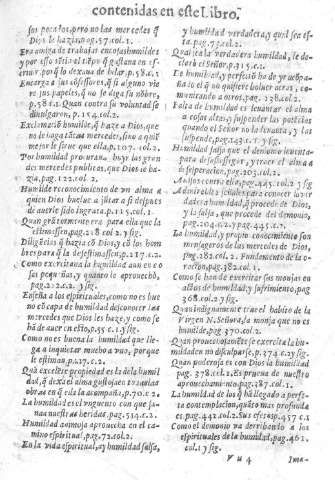 contenidas en este Libro.
sos pecados, pero no las mercedes q̃
Dios le hazia. pag. 57. col. 1.
Era amiga de trabar encojahumildes
y por esso sentia el tiẽpo q̃ gastaua en es-
criuir, porq̃ lo dexaua de hilar. p. 58. c. 1
Encarga a sus cõfessores, q̃ si alguno viere
sus papeles, q̃ no se diga su nõbre,
p. 58. c. 1. Quan contra su voluntad se
diuulgaron, p. 114. col. 2.
Exclamaciõ humilde, q̃ haze a Dios, que
no le haga tãtas mercedes, sino a quien
mejor le sirue que ella, p. 107. col. 2.
Por humildad procuraua huyr las grandes
mercedes publicas, que Dios le hazia,
pag. 122. col. 2.
Humilde reconocimiento de vn alma a
quien Dios buelue a jũtar a si despues
de auerle sido ingrata. p. 115. col. 1.
Quan grã tormento era para ella que la
estimassen, pag. 218. col. 2. y sig.
Diligẽcias q̃ hazia cõ Dios, y cõ los hombres
para q̃ la desestimassen. p. 217. c. 2.
Como exercitaua la humildad aun en cosas
pequeñas, y quanto le aprouechò,
pag. 222. c. 2. y sig.
Enseña a los espirituales, como no es bueno
cõ capa de humildad desconocer las
mercedes que Dios les haze, y como se
hã de auer en esto, p. 55. c. 1. y sig.
Como no es buena la humildad que llega
a inquietar mucho a vno, porque
le estiman, p. 217. c. 2.
Quã excelẽte propiedad es la de la humildad,
q̃ dexa el alma gustosa en trabajos
obras en q̃ ella le acompaña, p. 70. c. 2.
La humildad es el vnguento con que sanan
nuestras heridas. pag. 514. c. 2.
Humildad amorosa aprouecha en el camino
espiritual, p. 72. col. 2.
En la vida espiritual, ay humildad falsa,
y humildad verdadera, y qual sea esta.
pag. 75. col. 2.
Qual sea la verdadera humildad, le declarò
el Señor. p. 215. c. 2.
De humildad, y perfeciõ ha de yr acõpañado
el q̃ no quisiere boluer atras, comunicando
a otros, pag. 228. col. 2.
Falta de humildad es leuantar el alma
a cosas altas, y suspender las potencias
quando el Señor no la leuanta, y las
suspende, pag. 431. c. 1. y sig.
Humildad falsa que el demonio inuenta
para desassossegar, y traer el alma a
desesperacion, pag. 205. col. 2.
Auisos contra ella, pag. 445. col. 2. y sig
Admirable y señales para conocer la verdadera
humildad, q̃ procede de Dios,
y la falsa, que procede del demonio,
pag. 204. c. 2. y pag. 445. c. 2.
La humildad, y propio conocimiento son
mensageros de las mercedes de Dios,
pag. 282. col. 2. Fundamento de la oracion,
pag. 382. col. 1.
Como se han de exercitar sus monjas en
actos de humildad, y sufrimiento, pag
368. col. 2. y sig.
Quan indignamente trae el habito de la
Virgen N. Señora, la monja que no es
humilde, pag. 370. col. 2.
Quan prouechosamẽte se exercita la humildad
en no disculparse, p. 374. c. 2. y sig.
Quan poderosa es con Dios la humildad
pag. 378. c. 1. Es prueua de nuestro
aprouechamiento, pag. 387. col. 1.
La humildad de los q̃ ha llegado a perfeta
contemplacion, quãto mas profunda
es pag. 442. col. 2. Sus efetos p. 457. c. 1
Como el demonio va derribando a los
espirituales de la humildad, pag. 461.
col. 1. y sig.
V u 4 Ima-